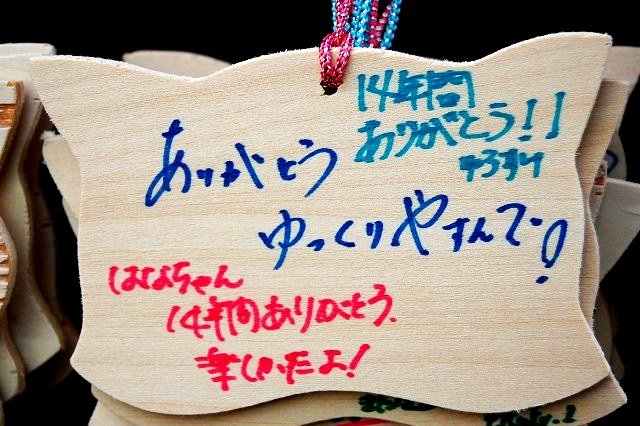 14年間
ありがとう!!
ありがとう
ゆっくりやすんで!
はなちゃん
14年間ありがとう。
楽しかったよ!